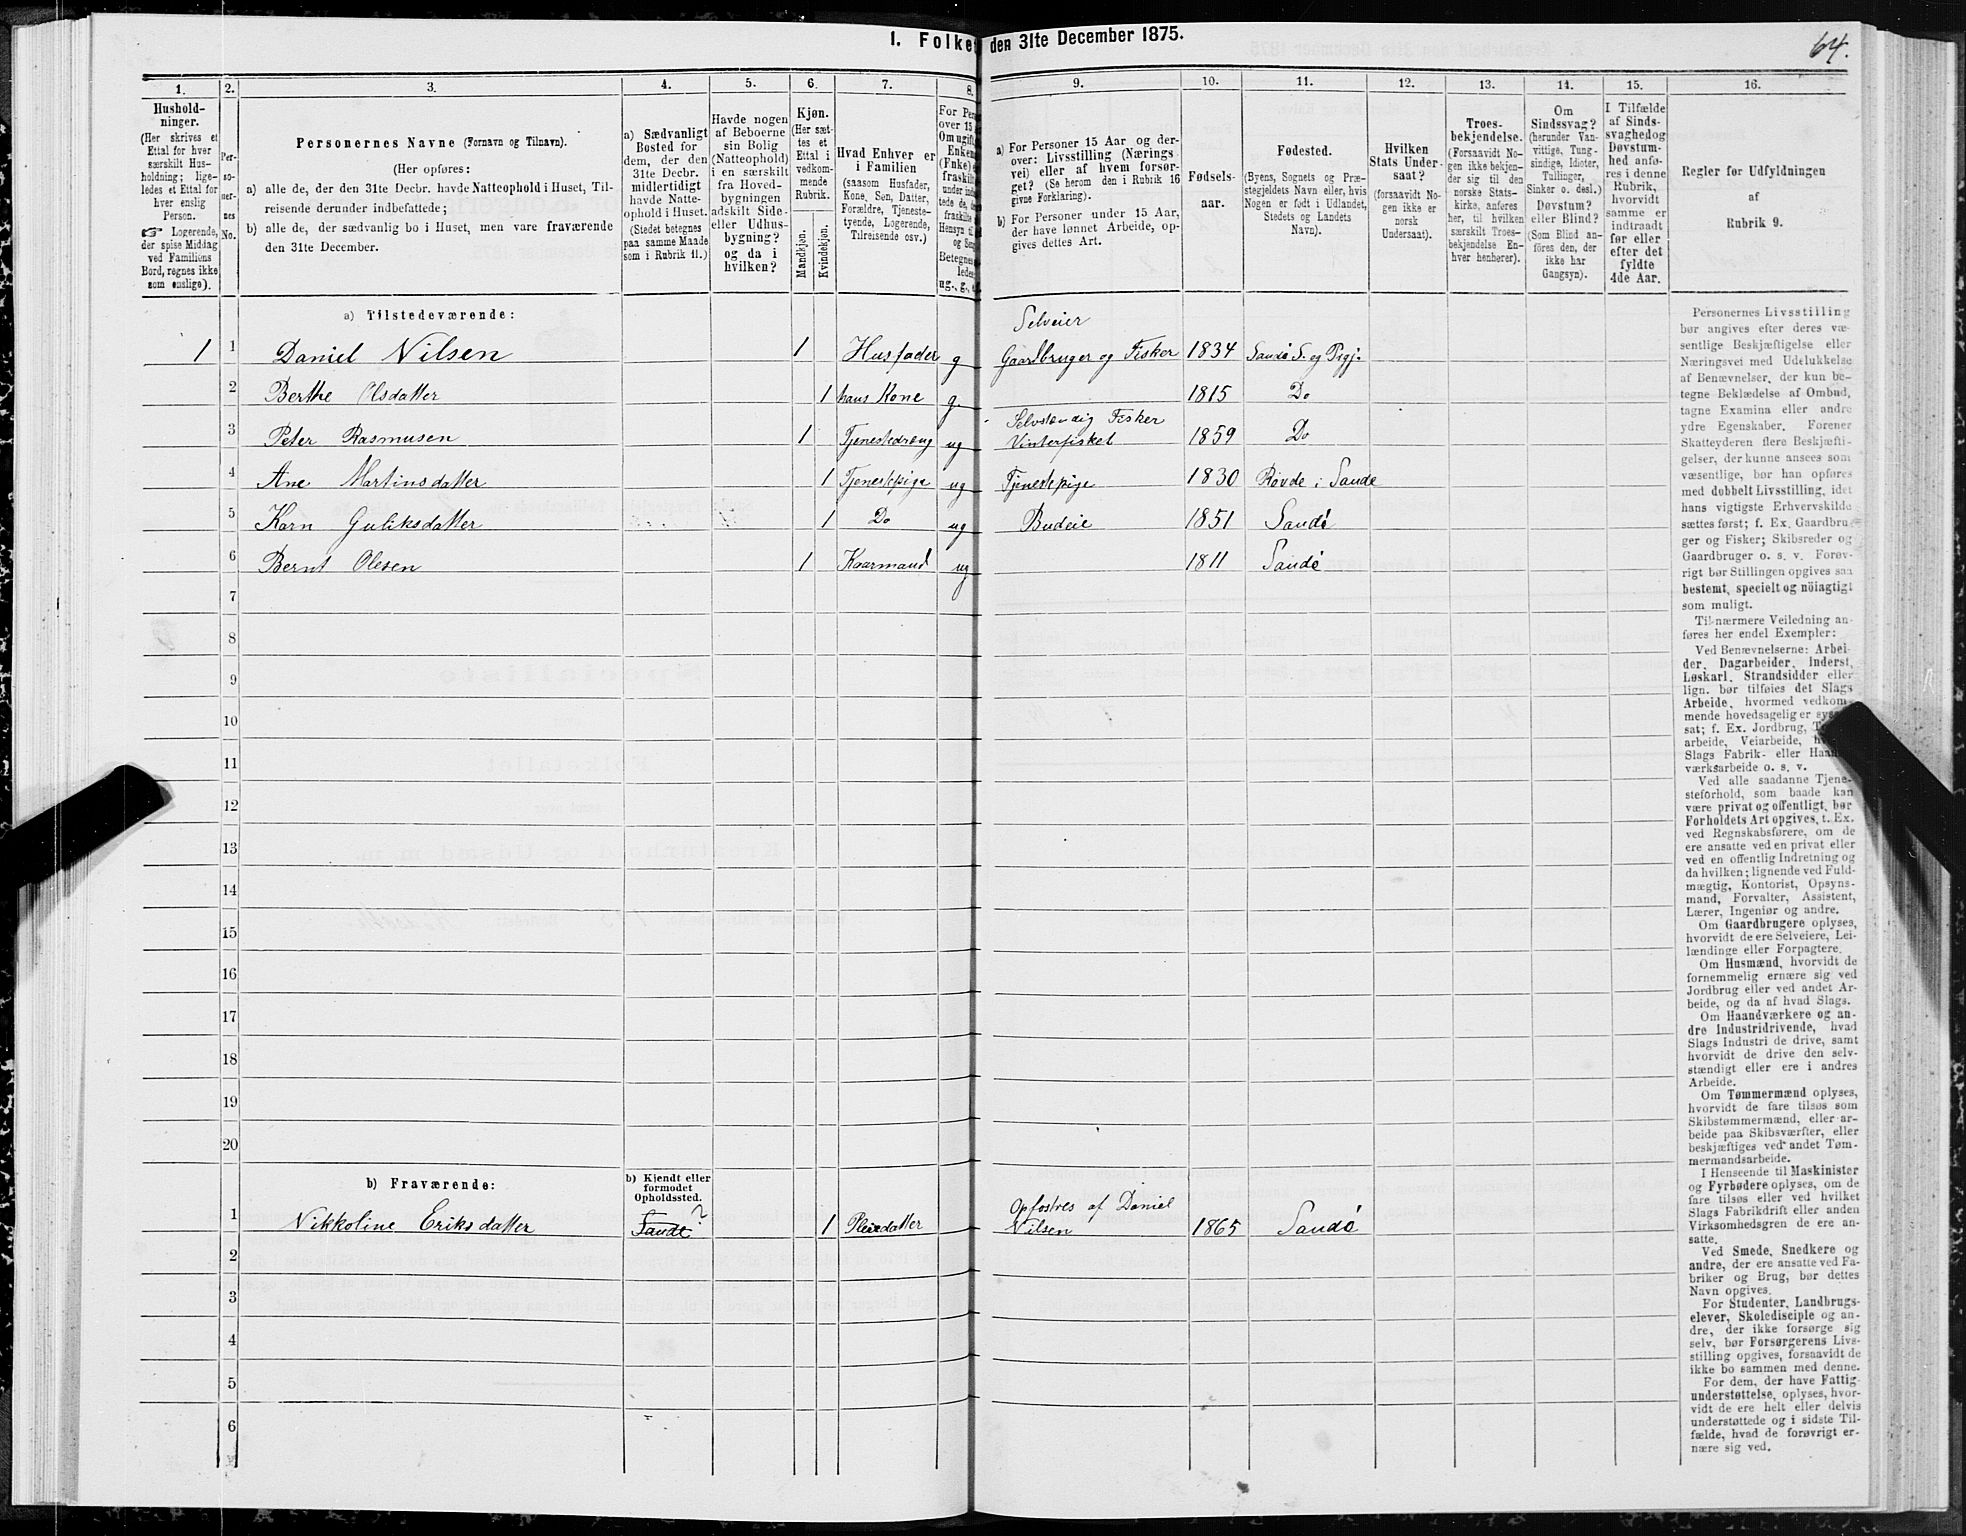 1. Folke
den 31te December 1875.
64.
1.
2.
3.
4.
5.
6.
7.
8.
9.
10.
11.
12.
13.
14.
15.
16.
Hushold-
ninger.
(Her skrives et
Ettal for hver
særskilt Hus-
holdning; lige-
ledes et Ettal for
hver enslig
Person.
☞ Logerende,
der spise Middag
ved Familiens
Bord, regnes ikke
som enslige).
Per-
so-
ner-
nes
No.
Personernes Navne (Fornavn og Tilnavn).
(Her opføres:
a) alle de, der den 31te Decbr. havde Natteophold i Huset, Til-
reisende derunder indbefattede;
b) alle de, der sædvanlig bo i Huset, men vare fraværende
den 31te December.
a) Sædvanligt
Bosted for
dem, der den
31te Decbr.
midlertidigt
havde Natte-
ophold i Huset.
(Stedet betegnes
paa samme Maade
som i Rubrik 11.)
Havde nogen
af Beboerne
sin Bolig
(Natteophold)
i en særskilt
fra Hoved-
bygningen
adskilt Side-
eller Udhus-
bygning?
og da i
hvilken?
Kjøn.
(Her sæt-
tes et
Ettal i
vedkom-
mende
Rubrik.
Mandkjøn.
Kvindekjøn.
Hvad Enhver er
i Familien
(saasom Husfader,
Kone, Søn, Datter,
Forældre, Tjeneste-
tyende, Logerende,
Tilreisende osv.)
For Per
over 15
Om ugift,
Enken
(Fnke) e
fraskilt
under ind
tede de,
fraskilte
Hensyn til
og Sen
Betegnes
ledes
ug., g.,
a) For Personer 15 Aar og der-
over: Livsstilling (Nærings-
vei) eller af hvem forsør-
get? (Se herom den i Rubrik 16
givne Forklaring).
b) For Personer under 15 Aar,
der have lønnet Arbeide, op-
gives dettes Art.
Fødsels-
aar.
Fødested.
(Byens, Sognets og Præ-
stegjeldets Navn eller, hvis
Nogen er født i Udlandet,
Stedets og Landets
Navn).
Hvilken
Stats Under-
saat?
(forsaavidt No-
gen ikke er
norsk
Undersaat).
Troes-
bekjendelse.
(Forsaavidt No-
gen ikke bekjen-
der sig til den
norske Stats-
kirke, anføres
her, til hvilken
særskilt Troes-
bekjendelse En-
hver henhører).
Om
Sindssvag?
(herunder Van-
vittige, Tung-
sindige, Idioter,
Tullinger,
Sinker o. desl.)
Døvstum?
eller Blind?
(Som Blind an-
føres den, der
ikke har
Gangsyn).
I Tilfælde
af Sinds-
svaghed og
Døvstum-
hed anfø-
res i denne
Rubrik,
hvorvidt
samme er
indtraadt
før eller
efter det
fyldte
4de Aar.
Regler for Udfyldningen
af
Rubrik 9.
a) Tilstedeværende:
Selveier
1 1 Daniel Nilsen 1 Husfader g Gaardbruger og Fisker 1834 Sandø S. og Prgj.
2 Berthe Olsdatter 1 hans Kone g 1815 Do
Selvstændig Fisker
3 Peter Rasmusen 1 Tjenestedreng ug Vinterfisket 1859 Do
4 Ane Martinsdatter 1 Tjenestepige ug Tjenestepige 1830 Røvde i Sande
5 Karn Guliksdatter 1 Do ug Budeie 1851 Sandø
6 Bernt Olesen 1 Kaarmand ug 1811 Sandø
7
8
9
10
11
12
13
14
15
16
17
18
19
20
b) Fraværende:
b) Kjendt eller
formodet
Opholdssted.
Opfostres af Daniel
1 Nikkoline Eriksdatter Sande ? 1 Pleiedatter Nilsen 1865 Sandø
2
3
4
5
6
Personernes Livsstilling
bør angives efter deres væ-
sentlige Beskjæftigelse eller
Næringsvei med Udelukkelse
af Benævnelser, der kun be-
tegne Beklædelse af Ombud,
tagne Examina eller andre
ydre Egenskaber. Forener
Skatteyderen flere Beskjæfti-
gelser, der kunne ansees som
væsentlige, bør han opføres
med dobbelt Livsstilling, idet
hans vigtigste Erhvervskilde
sættes først; f. Ex. Gaardbru-
ger og Fisker; Skibsreder og
Gaardbruger o. s. v. Forøv-
rigt bør Stillingen opgives saa
bestemt, specielt og nöiagtigt
som muligt.
Til nærmere Veiledning an-
føres her endel Exempler:
Ved Benævnelserne: Arbei-
der, Dagarbeider, Inderst,
Løskarl, Strandsidder eller
lign. bør tilføies det Slags
Arbeide, hvormed vedkom-
mende hovedsagelig er syssel-
sat; f. Ex. Jordbrug,
arbeide, Veiarbeide,
Slags Fabrik- eller Haand-
værksarbeide o. s. v.
Ved alle saadanne Tjene-
steforhold, som baade kan
være privat og offentligt, bør
Forholdets Art opgives, t. Ex.
ved Regnskabsførere, om de
ere ansatte ved en privat eller
ved en offentlig Indretning og
da hvilken; lignende ved Fuld-
mægtig, Kontorist, Opsyns-
mand, Forvalter, Assistent,
Lærer, Ingeniør og andre.
Om Gaardbrugere oplyses,
hvorvidt de ere Selveiere, Lei-
lændinge eller Forpagtere.
Om Husmænd, hvorvidt de
fornemmelig ernære sig ved
Jordbrug eller ved andet Ar-
beide, og da af hvad Slags.
Om Haandværkere og an-
dre Industridrivende, hvad
Slags Industri de drive, samt
hvorvidt de drive den selv-
stændigt eller ere i andres
Arbeide.
Om Tømmermænd oplyses,
hvorvidt de fare tilsøs som
Skibstømmermænd, eller ar-
beide paa Skibsværfter, eller
beskjæftiges ved andet Tøm-
mermandsarbeide.
I Henseende til Maskinister
og Fyrbødere oplyses, om de
fare tilsøs eller ved hvilket
Slags Fabrikdrift eller anden
Virksomhedsgren de ere an-
satte.
Ved Smede, Snedkere og
andre, der ere ansatte ved Fa-
briker og Brug, bør dettes
Navn opgives.
For Studenter, Landbrugs-
elever, Skoledisciple og an-
dre, der ikke forsørge sig
selv, bør Forsørgerens Livs-
stilling opgives, forsaavidt de
ikke bo sammen med denne.
For dem, der have Fattig-
understøttelse, oplyses, hvor-
vidt de ere helt eller delvis
understøttede og i sidste Til-
fælde, hvad de forøvrigt er-
nære sig ved.